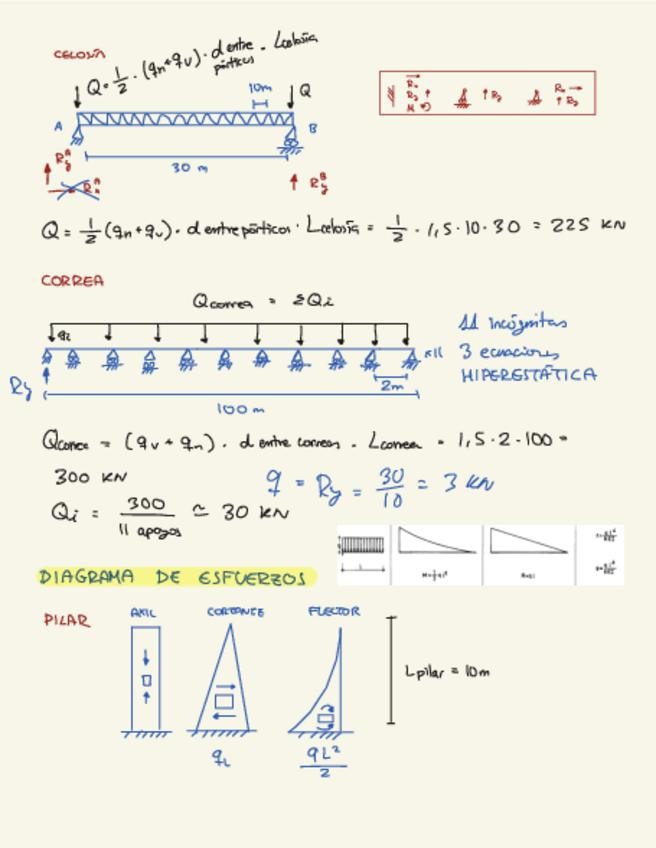 CELOSÍA
Q = 1/2 · (qn+qv) · d entre pórticos · Lcelosía
10m
Q
A
B
30 m
RyA
RxA
RyB
Rx
Ry ↑
M
↑ Ry
Rx →
↑ Ry
Q = 1/2 (qn+qv) · d entre pórticos · Lcelosía = 1/2 · 1,5 · 10 · 30 = 225 KN
CORREA
Qcorrea = ΣQi
qi
x11
Ry
2m
100 m
11 incógnitas
3 ecuaciones
HIPERESTÁTICA
Qcorrea = (qv + qn) · d entre correas · Lcorrea = 1,5 · 2 · 100 =
300 KN
q = Ry = 30/10 = 3 KN
Qi = 300/11 apoyos ≃ 30 KN
DIAGRAMA DE ESFUERZOS
PILAR
AXIL
CORTANTE
FLECTOR
Lpilar = 10m
qL
qL²/2